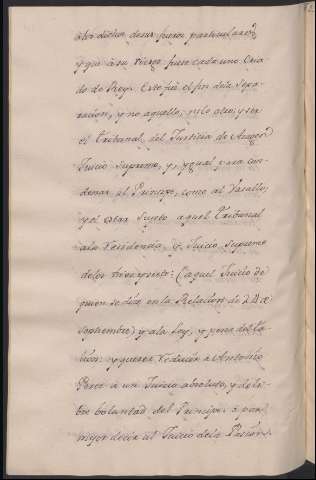 a los dichos desus fueros particulares;
y que à su tiempo fuese cada uno Cria-
do de Rey. Este fuè el fin dela Sepa-
racion, y no aquello, ni lo otro; y ser
el Tribunal del Justicia de Aragon
Juicio Supremo, y, ygual para con-
denar al Principe, como al Vasallo;
y el estar Sujeto aquel Tribunal
ala Residencia, y Juicio Supremo
delos
(aquel Juicio de
quien se dice en la Relacion de 24 de
Septiembre) y ala Ley, y penas del Ta-
lion: y querer reducir à Antonio
Perez à un Juicio absoluto, y de li-
bre boluntad del Principe, ò por
mejor decir al Juicio dela Pasion.